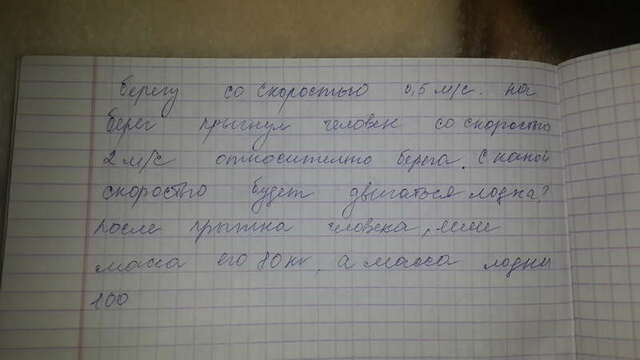 берегу со скоростью 0,5 м/с. на
берег прыгнул человек со скоростью
2 м/с относително берега. С какой
скоростью будет двигаться лодка?
после прыжка человека, если
масса его 80 кг, а масса лодки
100